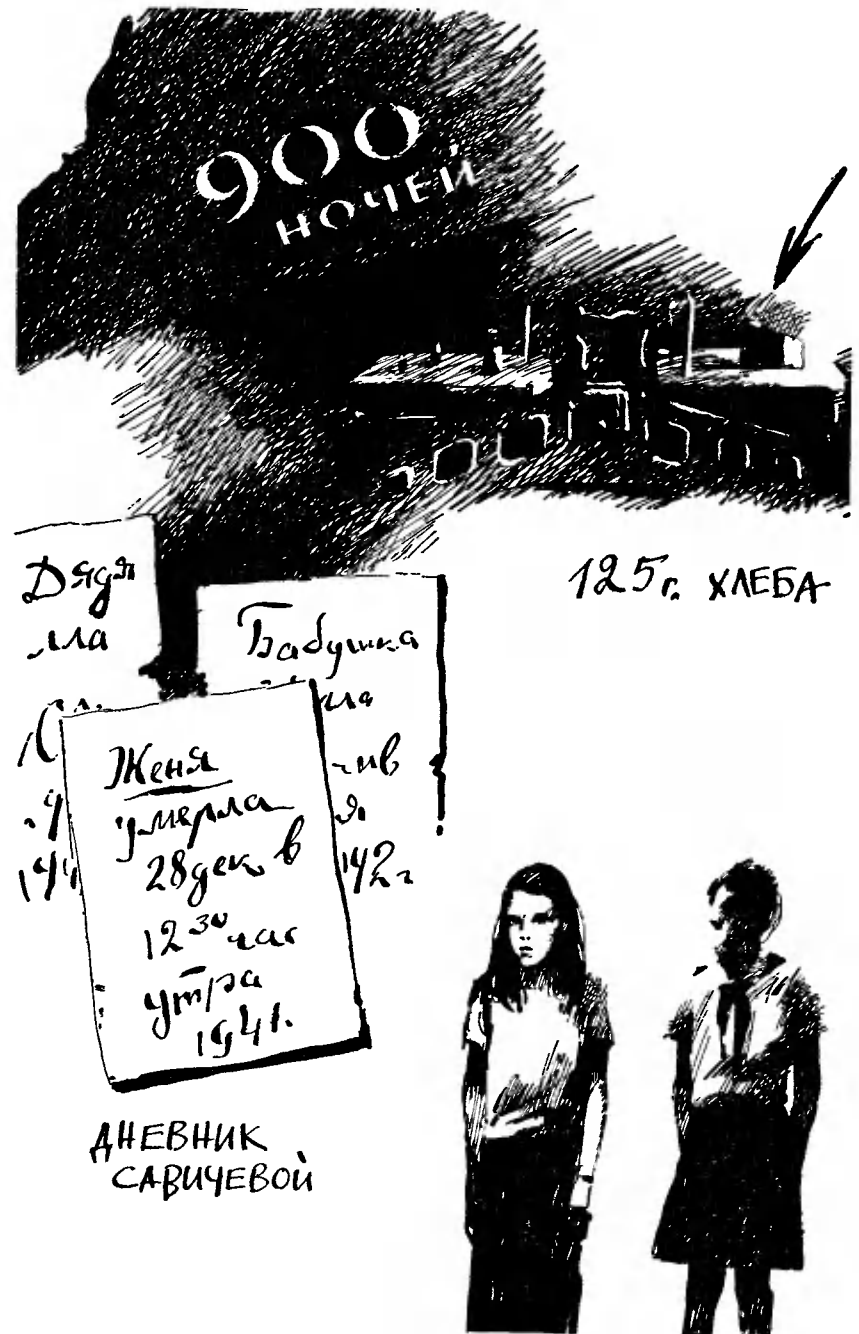 900
НОЧЕЙ
125 г. ХЛЕБА
Дядя
Бабушка
Женя
умерла
28 дек. в
12 30 час
утра
1941.
42 г
ДНЕВНИК
САВИЧЕВОЙ